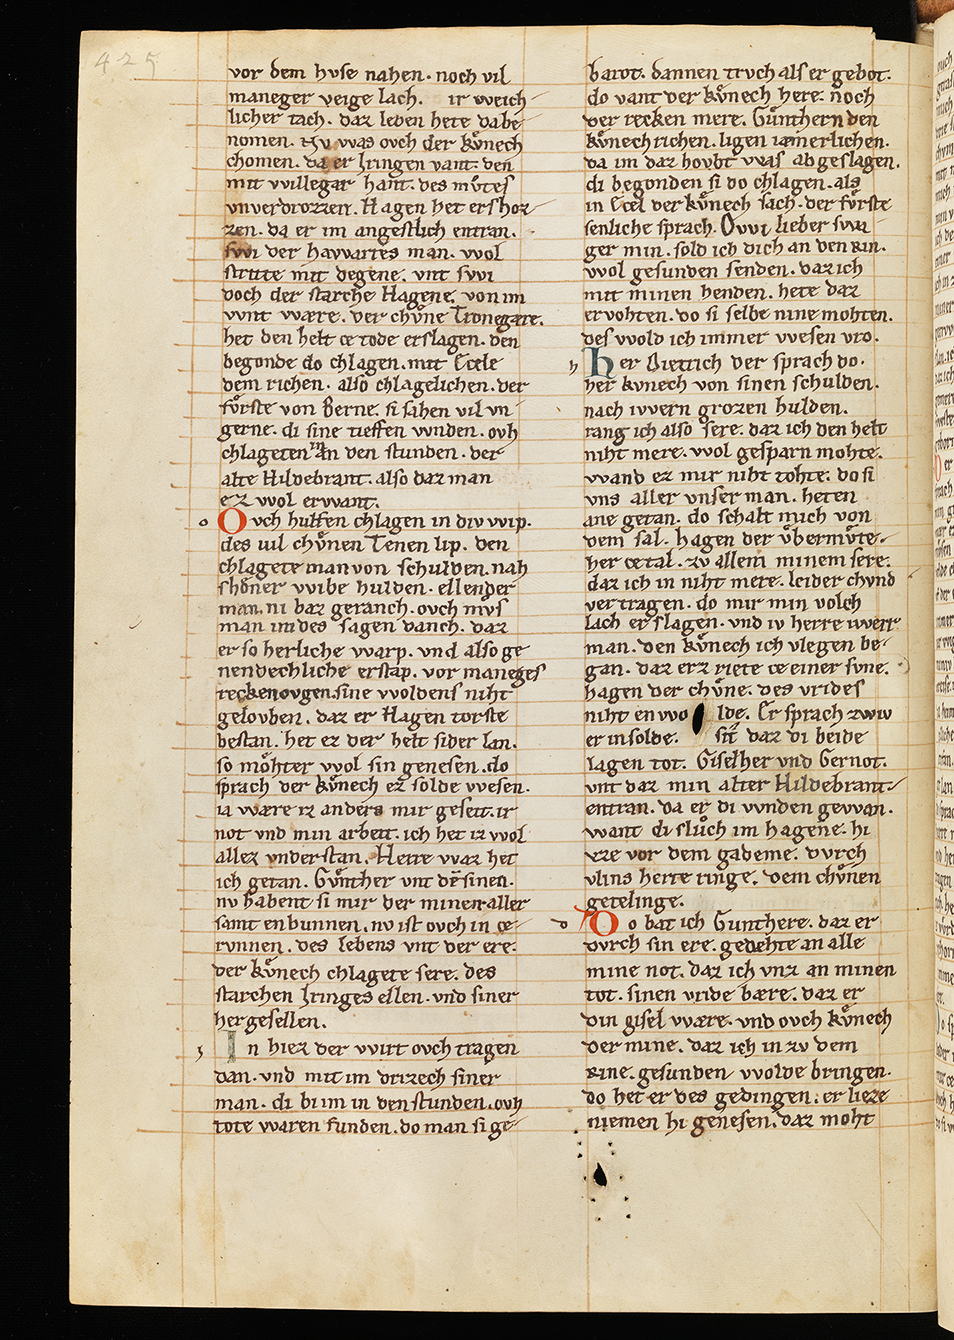 425
vor dem huse nahen. noch vil
maneger veige lach. ir vveich
licher tach. daz leben hete da be
nomen. Nv vvas ovch der kuͤnech
chomen. da er Iringen vant. den
mit vvillegar hant. des muͦtes
vnverdrozzen. Hagen het ershoz
zen. da er im angestlich entran.
svvi der havvartes man. vvol
stritte mit degene. vnt svvi
doch der starche Hagene. von im
vvnt vvære. der chuͤne Tronegære.
het den helt ce tode erslagen. den
begonde do chlagen. mit Ecele
dem richen. also chlagelichen. der
fuͤrste von Berne. si sahen vil vn
gerne. di sine tieffen vvnden. ovh
chlageten in an den stunden. der
alte Hildebrant. also daz man
ez vvol ervvant.
o Ovch hulffen chlagen in div vvip.
des uil chuͦnen Tenen lip. den
chlagete man von schulden. nah
shoͤner vvibe hulden. ellender
man. ni baz geranch. ovch mvs
man im des sagen danch. daz
er so herliche vvarp. vnd also ge
nendechliche erstarp. vor maneges
recken ovgen. sine vvoldens niht
gelovben. daz er Hagen torste
bestan. het ez der helt sider lan.
so moͤhter vvol sin genesen. do
sprach der kuͤnech ez solde vvesen.
ia vvære iz anders mir geseit. ir
not vnd min arbeit. ich het iz vvol
allez vnderstan. Herre vvaz het
ich getan. Guͤnther vnt dē sinen.
nv habent si mir der minen aller
samt enbunnen. nv ist ovch in ce
rvnnen. des lebens vnt der ere.
der kuͤnech chlagete sere. des
starchen Iringes ellen. vnd siner
hergesellen.
i In hiez der vvirt ovch tragen
dan. vnd mit im drizech siner
man. di bi im in den stunden. ovh
tote vvaren funden. do man si ge
barot. dannen trvch als er gebot.
do vant der kuͤnech here. noch
der recken mere. Gunthern den
kuͤnech richen. ligen iamerlichen.
da im daz hovbt vvas abgeslagen.
di begonden si do chlagen. als
in Ecel der kuͤnech sach. der fuͤrste
senliche sprach. Ovvi lieber svva
ger min. sold ich dich an den rin.
vvol gesunden senden. daz ich
mit minen henden. hete daz
ervohten. do si selbe nine mohten.
des vvold ich immer vvesen vro.
h Her Dietrich der sprach do.
her kvnech von sinen schulden.
nach ivvern grozen hulden.
rang ich also sere. daz ich den helt
niht mere. vvol gesparn mohte.
vvand ez mir niht tohte. do si
vns aller vnser man. heten
ane getan. do schalt mich von
dem sal. hagen der uͤbermuͤte.
her ce tal. zv allem minem sere.
daz ich in niht mere. leider chvnd
vertragen. do mir min volch
lach erslagen. vnd iv herre ivver
man. den kuͤnech ich vlegen be
gan. daz erz riete ce einer svne.
hagen der chuͤne. des vrides
niht en vvolde. Er sprach zvviv
er in solde. sit daz di beide
lagen tot. Giselher vnd Gernot.
vnt daz min alter Hildebrant
entran. da er di vvnden gevvan.
vvant di sluͦch im hagene. hi
vze vor dem gademe. dvrch
vlins herte ringe. dem chuͤnen
getelinge.
d Do bat ich Gunthere. daz er
dvrch sin ere. gedehte an alle
mine not. daz ich vnz an minen
tot. sinen vride bære. daz er
din gisel vvære. vnd ovch kuͤnech
der mine. daz ich in zv dem
Rine. gesunden vvolde bringen.
do het er des gedingen. er lieze
niemen hi genesen. daz moht